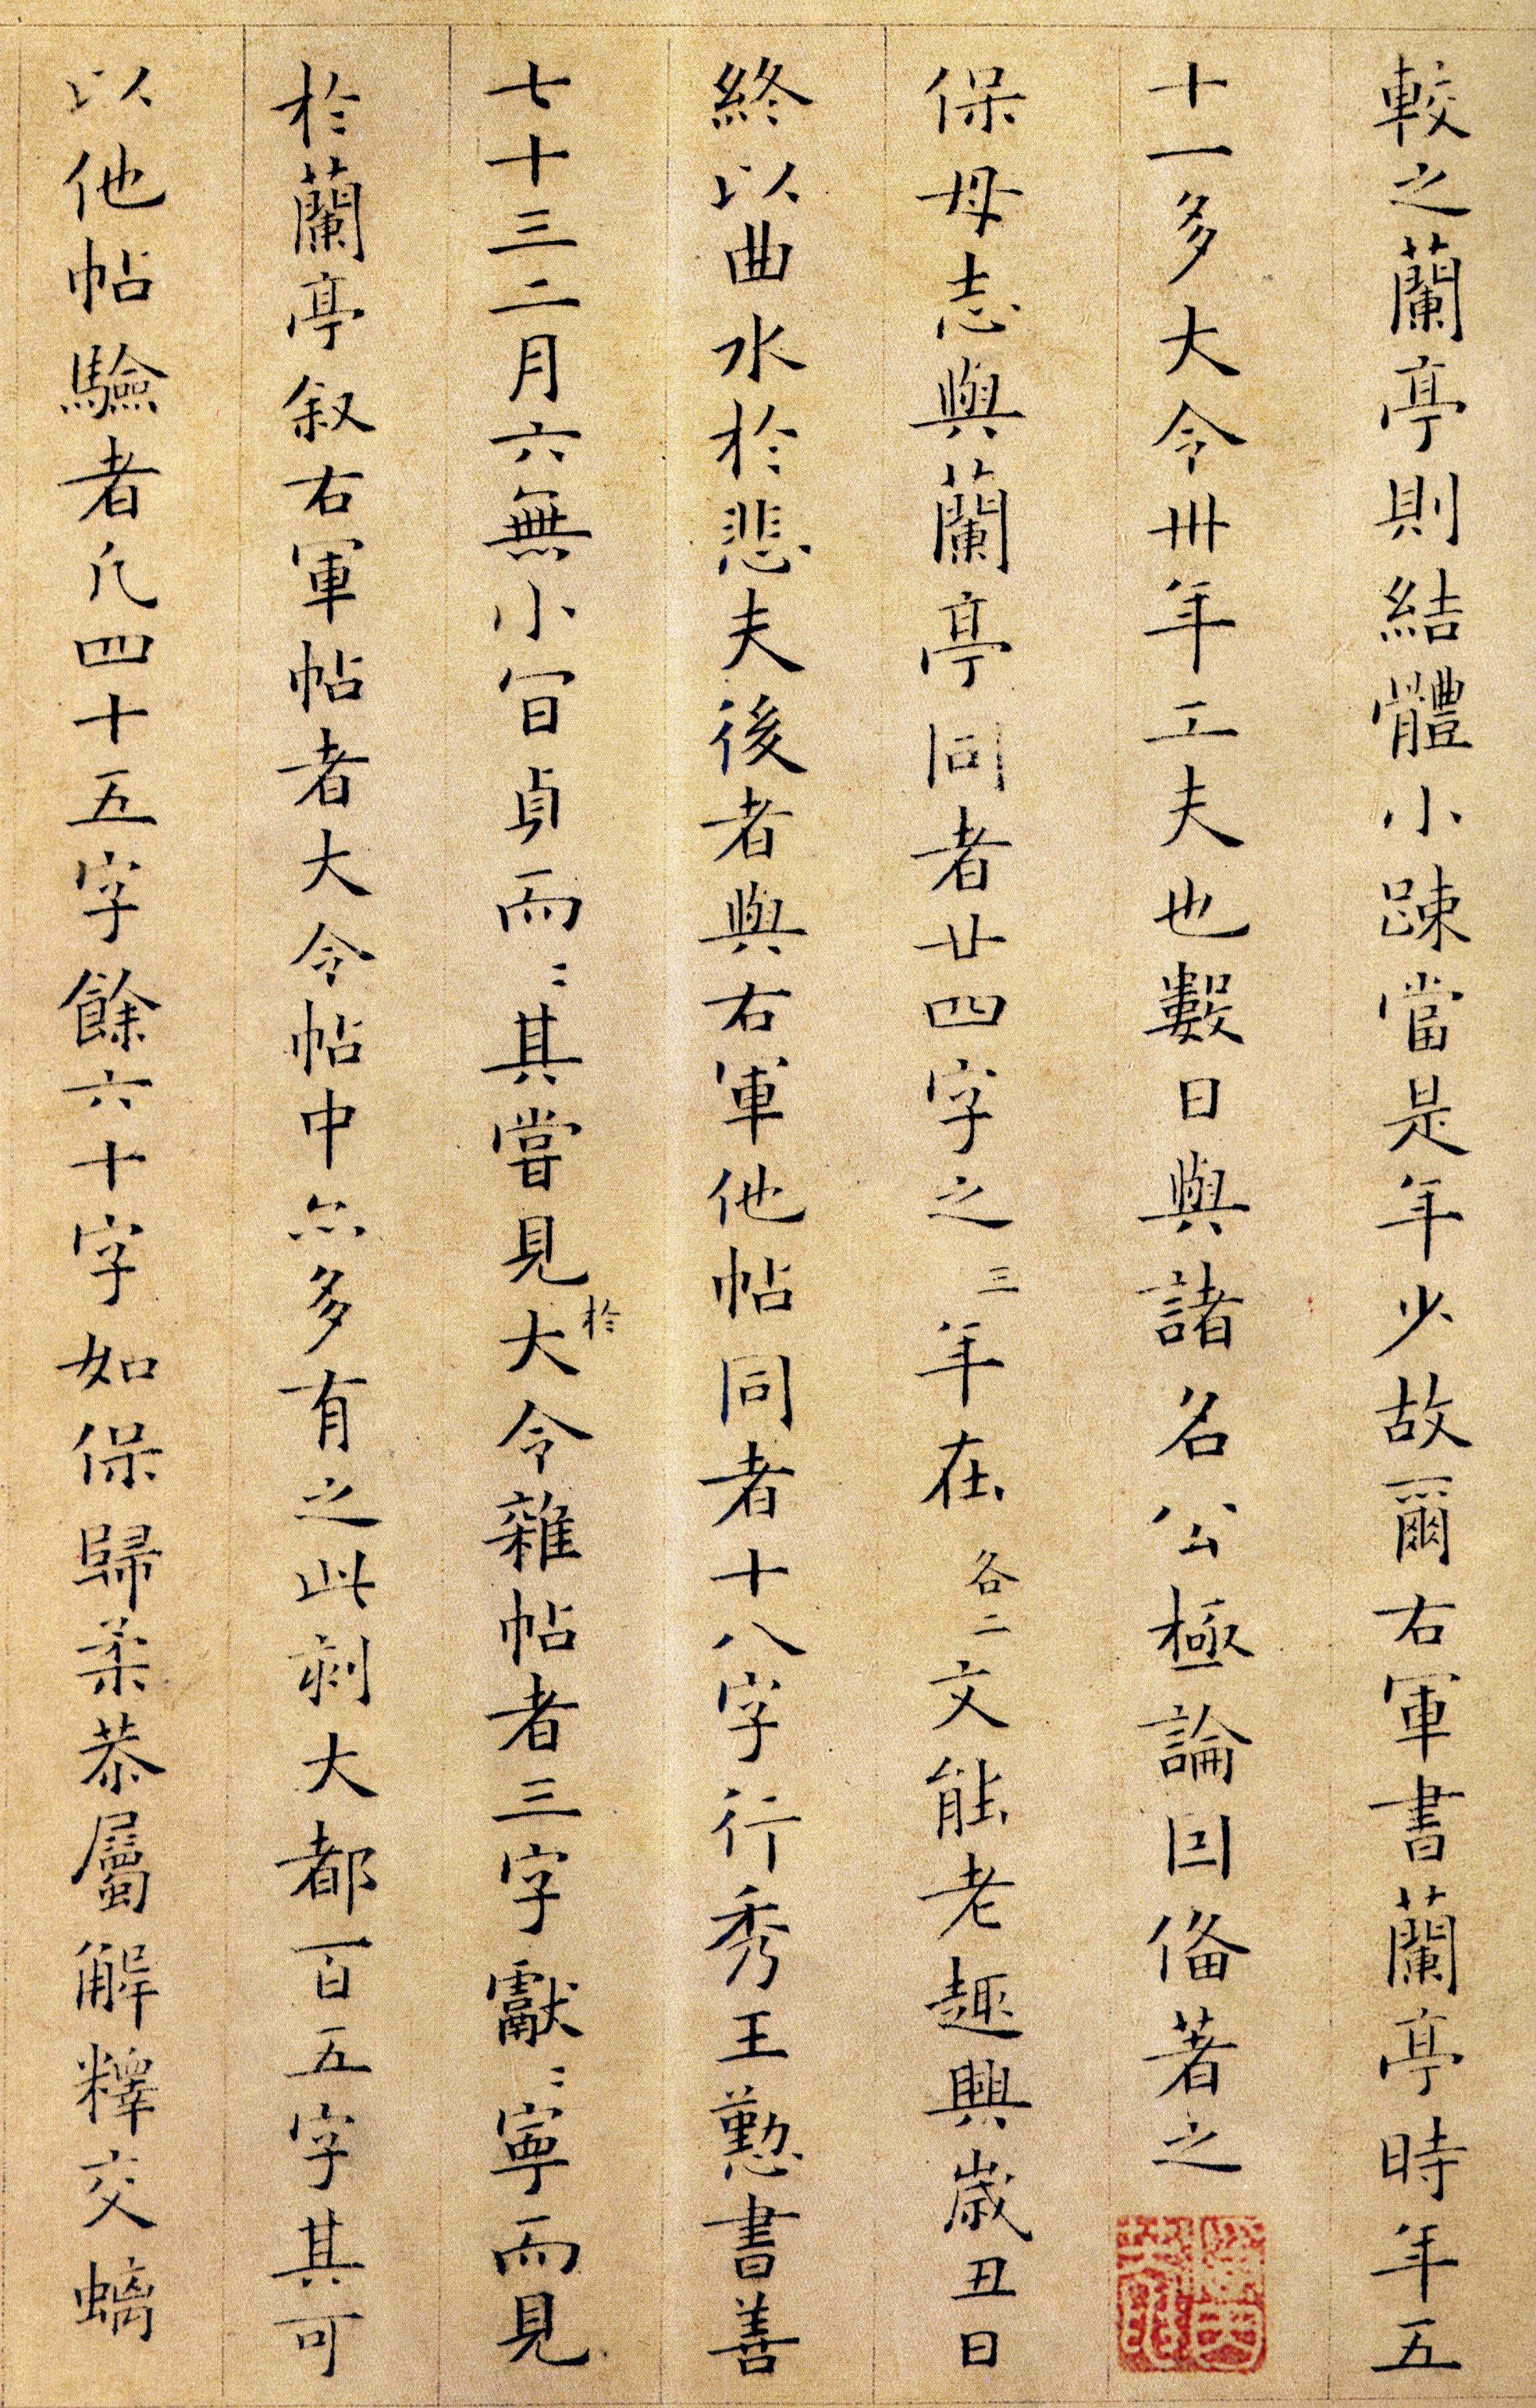 較之蘭亭則結體小踈當是年少故爾右軍書蘭亭時年五
十一多大令卅年工夫也數日與諸名公極論回俻著之
保母志與蘭亭同者廿四字之三年在各二文能老趣興歲丑日
終以曲水於悲夫後者與右軍他帖同者十八字行秀王懃書善
七十三二月六無小㝡貞而〻其嘗見於大令雜帖者三字獻〻寧而見
於蘭亭叙右軍帖者大令帖中亦多有之此刻大都百五字其可
以他帖驗者凡四十五字餘六十字如保歸柔恭屬解釋交螭